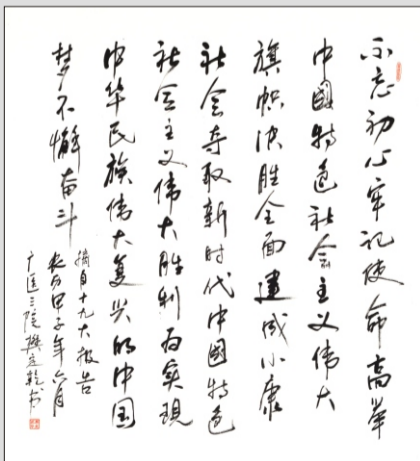 不忘初心牢记使命高举
中國特色社会主义伟大
旗帜决胜全面建成小康
社会夺取新时代中國特色
社会主义伟大胜利为实现
中华民族伟大复兴的中国
梦不懈奋斗
摘自十九大报告
年六月
广医三院